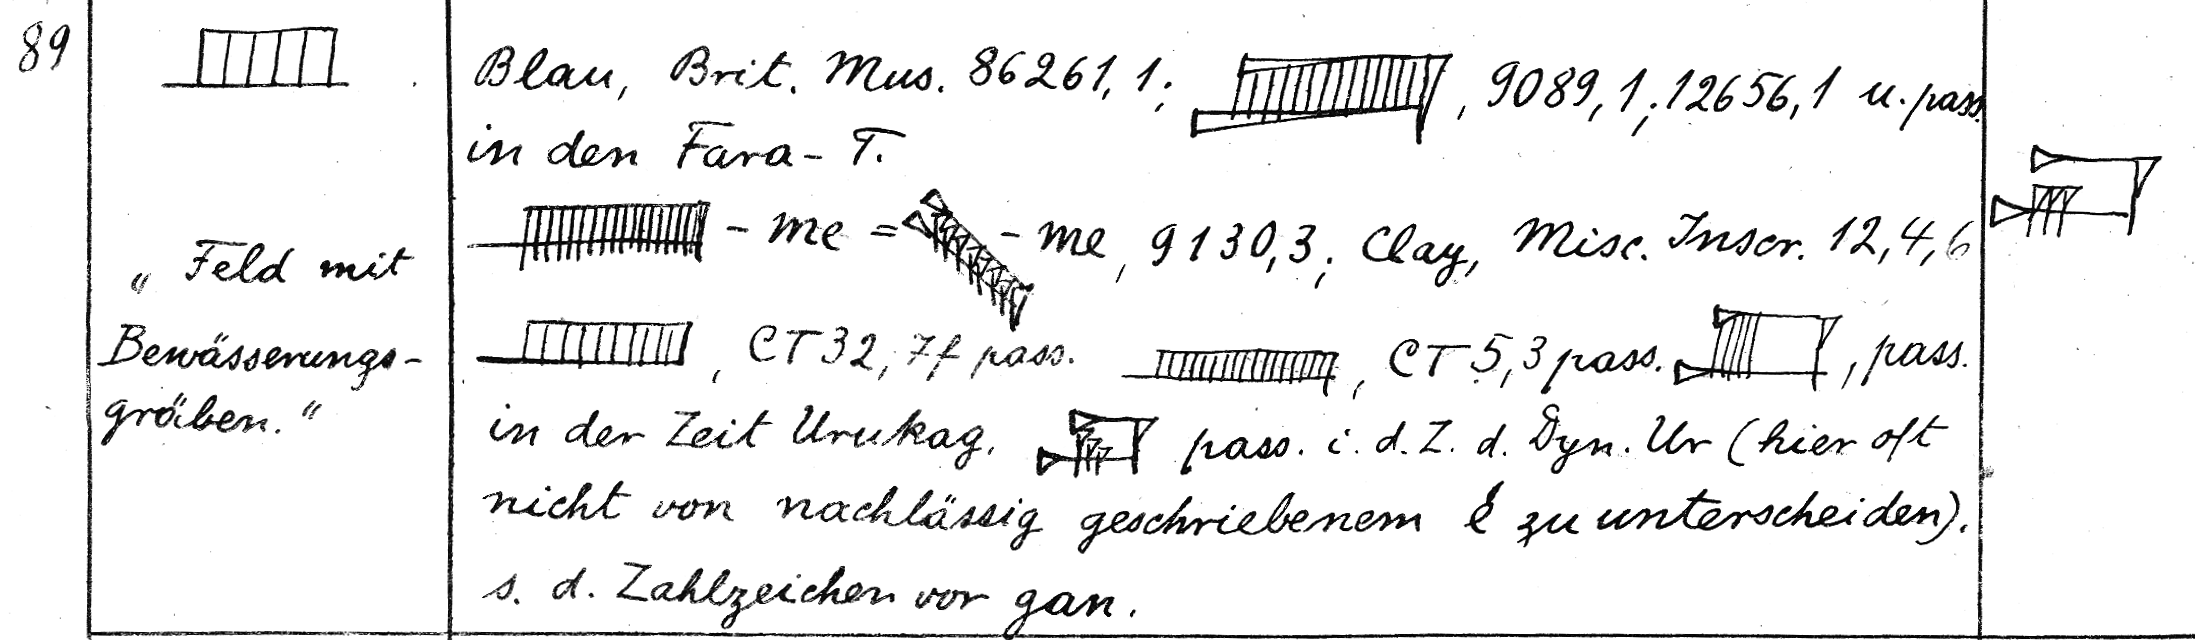 89
„Feld mit
Bewässerungs-
gräben.“
Blau, Brit. Mus. 86261, 1; , 9089, 1; 12656, 1 u. pass.
in den Fara-T.
- me = - me, 9130, 3; Clay, Misc. Inscr. 12, 4, 6
, CT 32, 7f pass. , CT 5, 3 pass. , pass.
in der Zeit Urukag. pass. i. d. Z. d. Dyn. Ur (hier oft
nicht von nachlässig geschriebenem é zu unterscheiden).
s. d. Zahlzeichen vor gan.